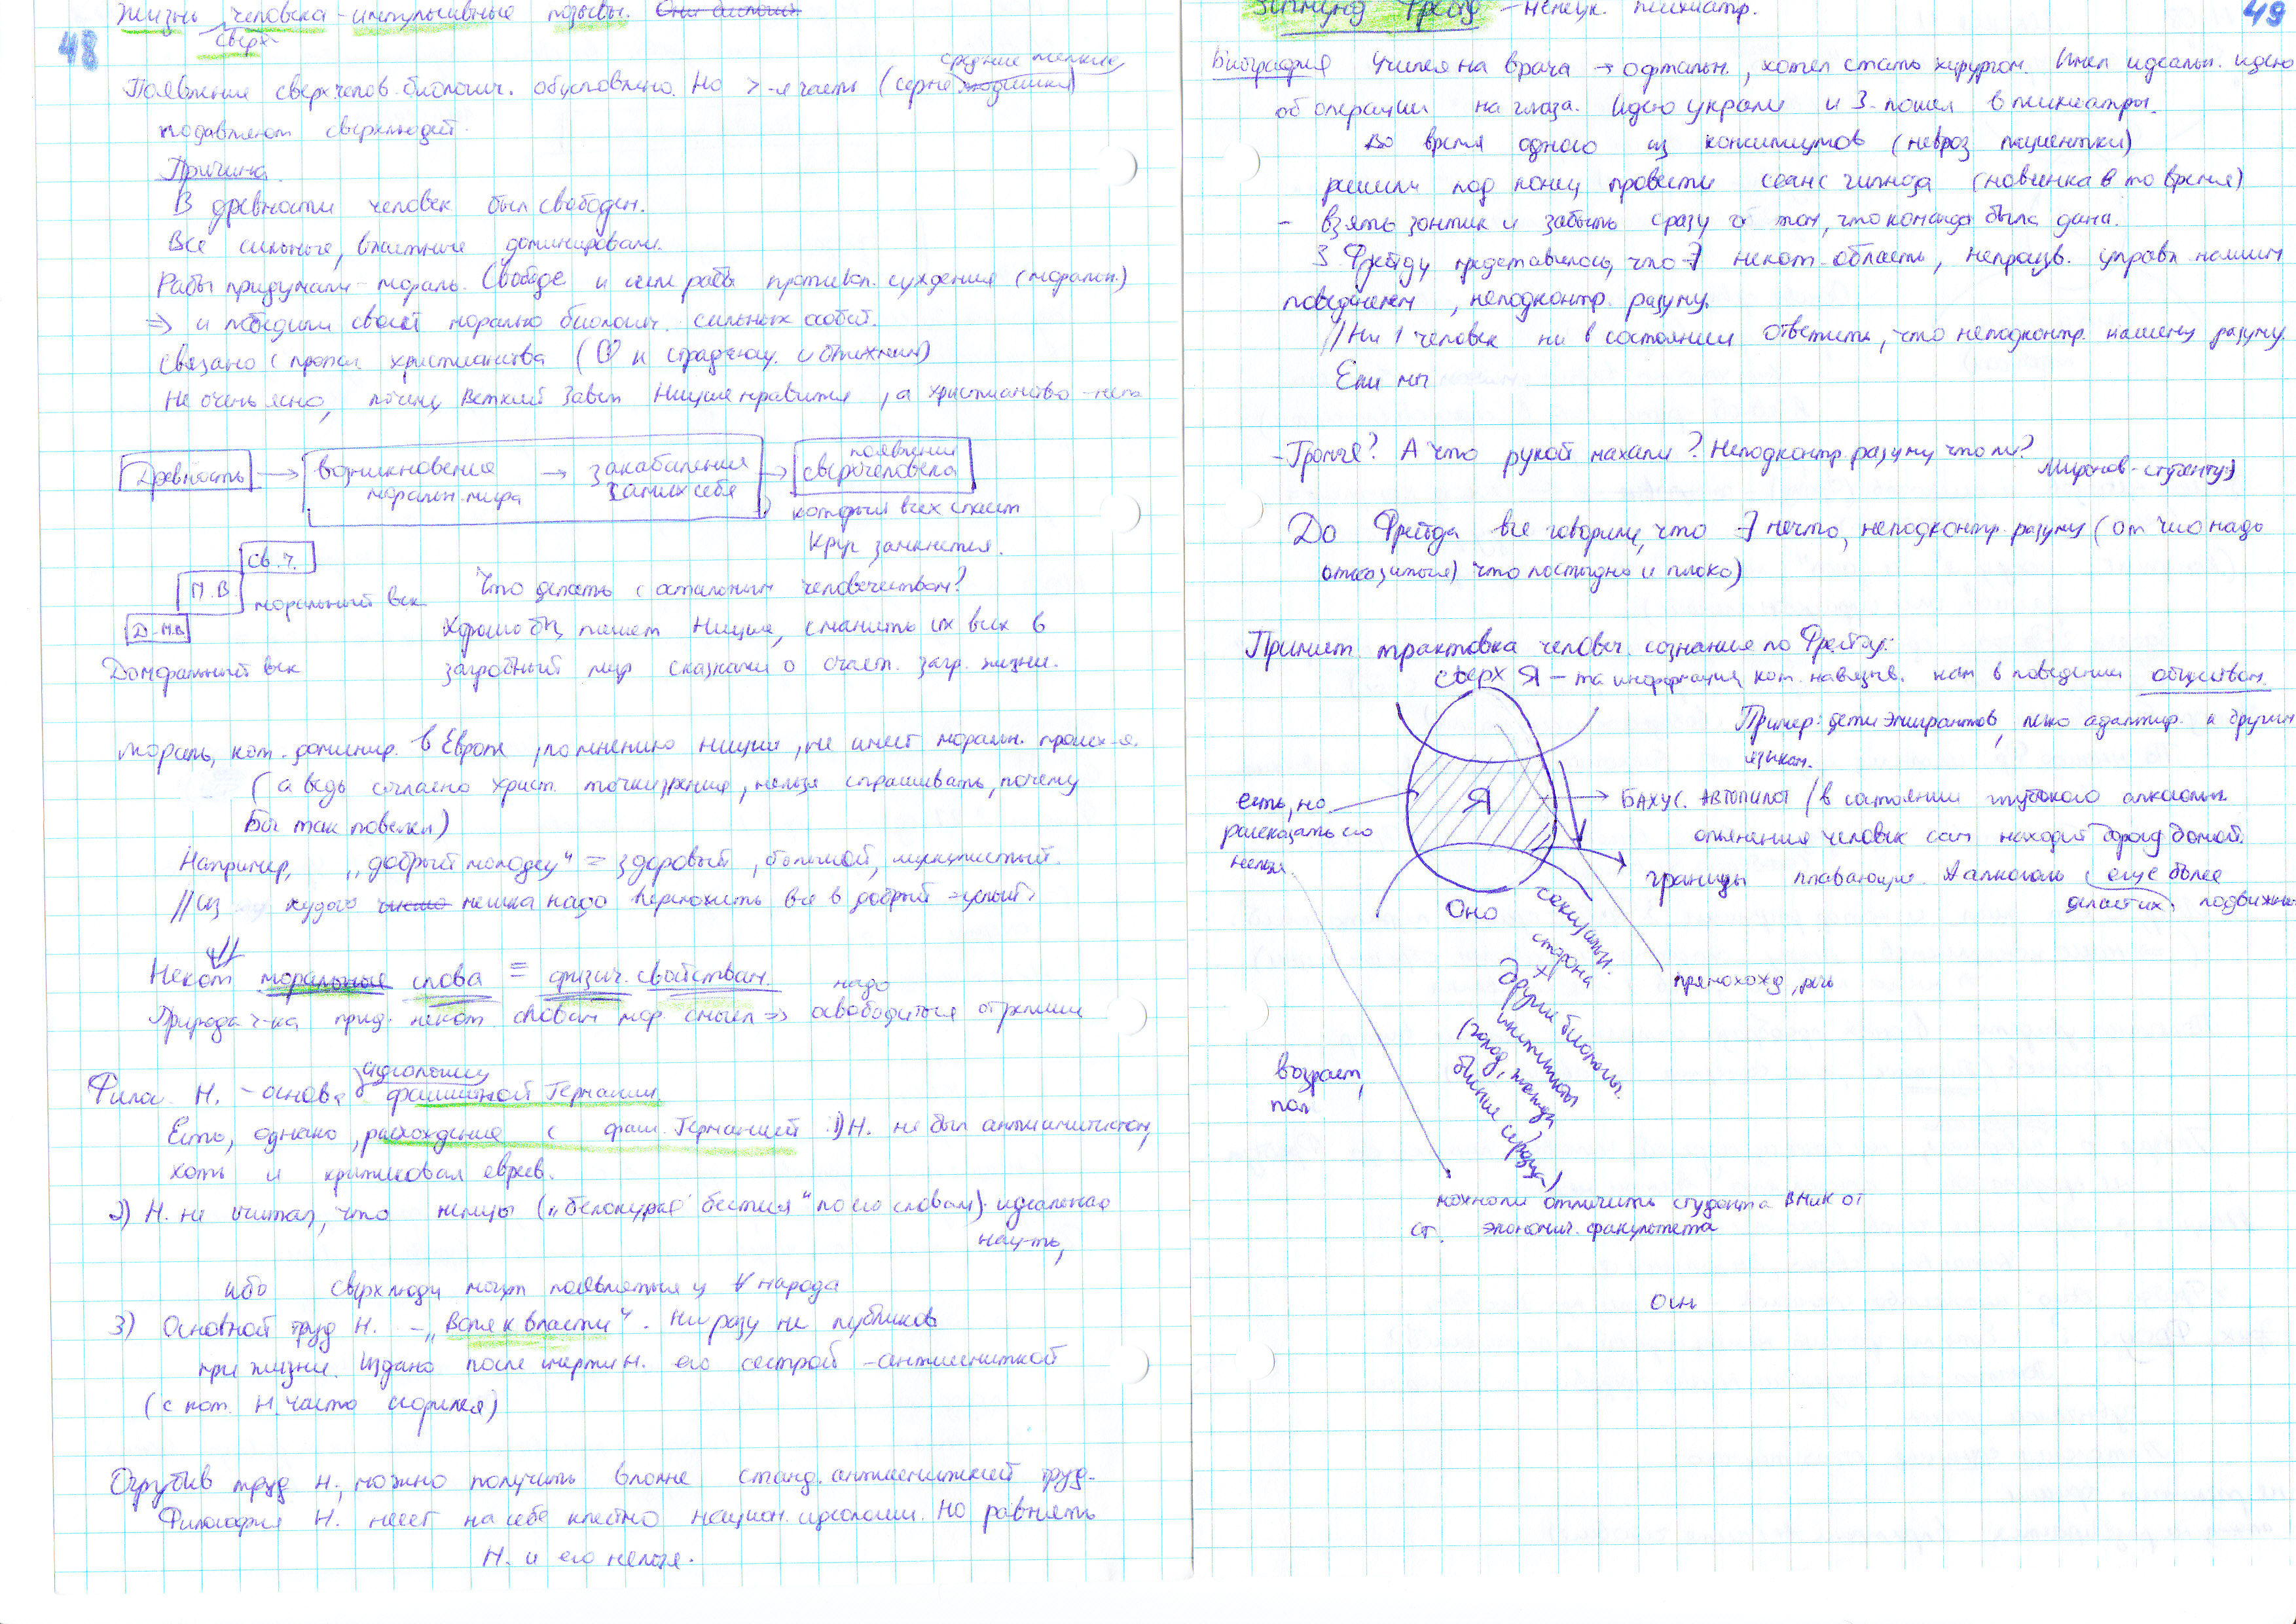 48
Жизнь сверхчеловека – импульсивные позывы.
Появление сверхчелов. биологич. обусловлено. Но >-я часть (серые средние мелкие)
подавляют сверхлюдей.
Причина.
В древности человек был свободен.
Все сильные, властные доминировали.
Рабы придумали – мораль. Свободе и силе рабы противоп. суждения (моральн.)
⇒ и победили своей моралью биологич. сильных особей.
Связано с пропов. христианства
Не очень ясно, почему Ветхий Завет Ницше нравится, а христианство – нет.
Древность → возникновение моральн. мира → закабаление самих себя → появление сверхчеловека
который всех спасет
Круг замкнется.
Св. ч.
М.В. моральный век
Д-М.В
Доморальный век
Что делать с остальным человечеством?
Хорошо бы, пишет Ницше, сманить их всех в
загробный мир сказками о счаст. загр. жизни.
Мораль, кот. доминир. в Европе, по мнению Ницше, не имеет моральн. происх-я.
(а ведь согласно христ. точки зрения, нельзя спрашивать, почему
Бог так повелел)
Например, „добрый молодец“ = здоровый, большой, мускулистый.
//Из худого мешка надо переложить все в добрый = целый
Некот моральные слова ≡ физич. свойствам.
Природа ч-ка прид. некот. словам мор. смысл ⇒ надо освободиться от религии
Филос. Н. – основа идеологии фашистской Германии.
Есть, однако, расхождения с фаш. Германией 1) Н. не был антисемитистом,
хоть и критиковал евреев.
2) Н. не считал, что немцы („белокурые бестии“ по его словам) идеальная
нац-ть,
ибо сверхлюди могут появляться у ∀ народа
3) Основной труд Н. – „Воля к власти“. Ни разу не публиков
при жизни. Издано после смерти Н. его сестрой – антисемиткой
(с кот. Н. часто ссорился)
Огрубив труд Н., можно получить вполне станд. антисемитский труд.
Философия Н. несет на себе клеймо национ. идеологии. Но равнять
Н. и его нельзя.
49
Зигмунд Фрейд – немецк. психиатр.
Биография Учился на врача → офтальм., хотел стать хирургом. Имел идеальн. идею
об операции на глаза. Идею украли и З. пошел в психиатры.
Во время одного из консилиумов (невроз пациентки)
решили под конец провести сеанс гипноза (новинка в то время)
– взять зонтик и забыть сразу о том, что команда была дана.
З. Фрейду представилось, что ∃ некот. область, непроизв. управл. нашим
поведением, неподконтр. разуму.
//Ни 1 человек не в состоянии ответить, что неподконтр. нашему разуму.
Если мы
– Громче? А что рукой махали? Неподконтр. разуму что ли?
Миронов – студенту :)
До Фрейда все говорили, что ∃ нечто, неподконтр. разуму (от чего надо
отказаться) что постыдно и плохо)
Примит. трактовка человеч. сознания по Фрейду:
сверх Я – та информация, кот. навязыв. нам в поведении обществом.
Пример: дети эмигрантов, легко адаптир. к другим
языкам.
есть, но
рассказать его
нельзя.
Я
БАХУС. АВТОПИЛОТ (в состоянии глубокого алкогольн.
опьянения человек сам находит дорогу домой.
границы плавающие. А алкоголь делает их еще более
подвижн
Оно
сексуальн.
сторона
+
другие биологич.
инстинкты
(голод, жажда
биение сердца)
прямохожд, речь
возраст,
пол
можно ли отличить студента ВМиК от
ст. экономич. факультета
Осн